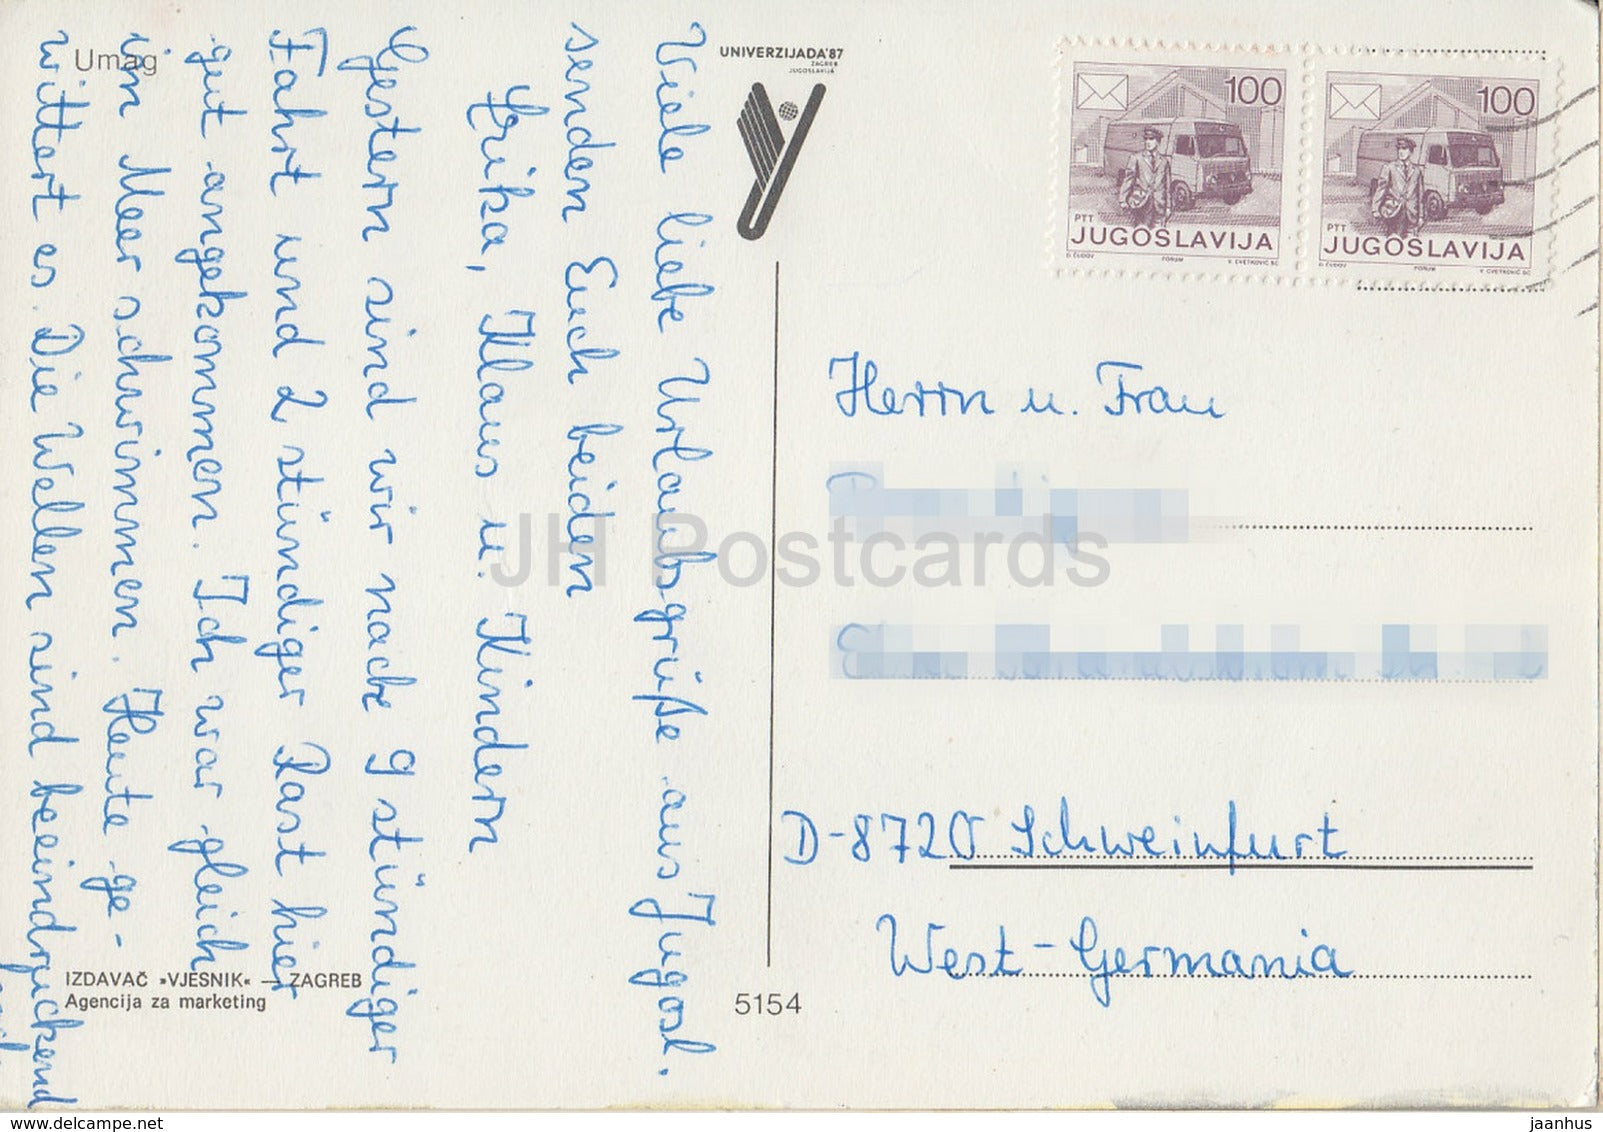 Umag
UNIVERZIJADA'87
ZAGREB
JUGOSLAVIJA
100
PTT
JUGOSLAVIJA
D. ČUDOV FORUM V. CVETKOVIĆ SC
100
PTT
JUGOSLAVIJA
D. ČUDOV FORUM V. CVETKOVIĆ SC
Viele liebe Urlaubsgrüße aus Jugosl.
senden Euch beiden
Erika, Klaus u. Kindern
Gestern sind wir nach 9 stündiger
Fahrt und 2 stündiger Rast hier
gut angekommen. Ich war gleich
im Meer schwimmen. Heute ge-
wittert es. Die Wellen sind beeindruckend
Herrn u. Frau
D-8720 Schweinfurt
West-Germania
IZDAVAČ »VJESNIK« — ZAGREB
Agencija za marketing
5154
JH Postcards
www.delcampe.net
jaanhus